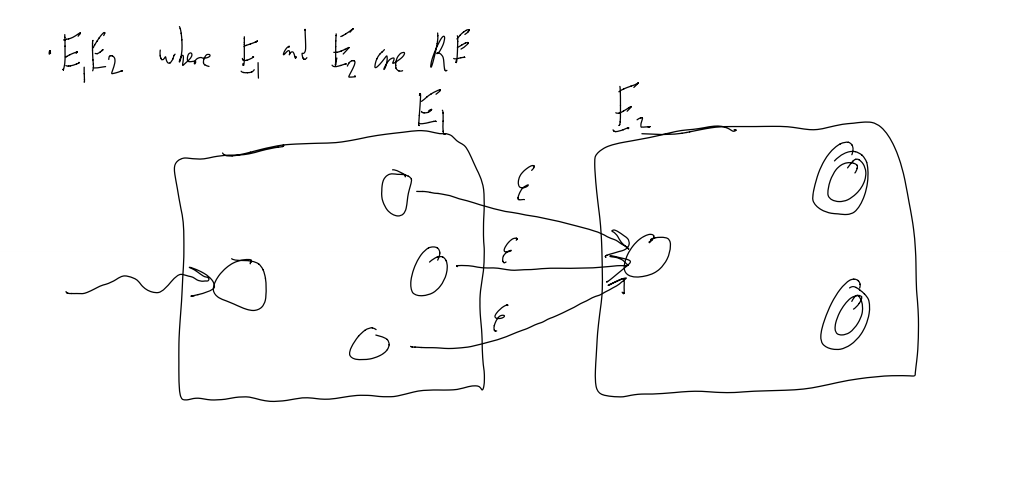 · E₁E₂ where E₁ and E₂ are RE
E₁ E₂
ε
ε
ε